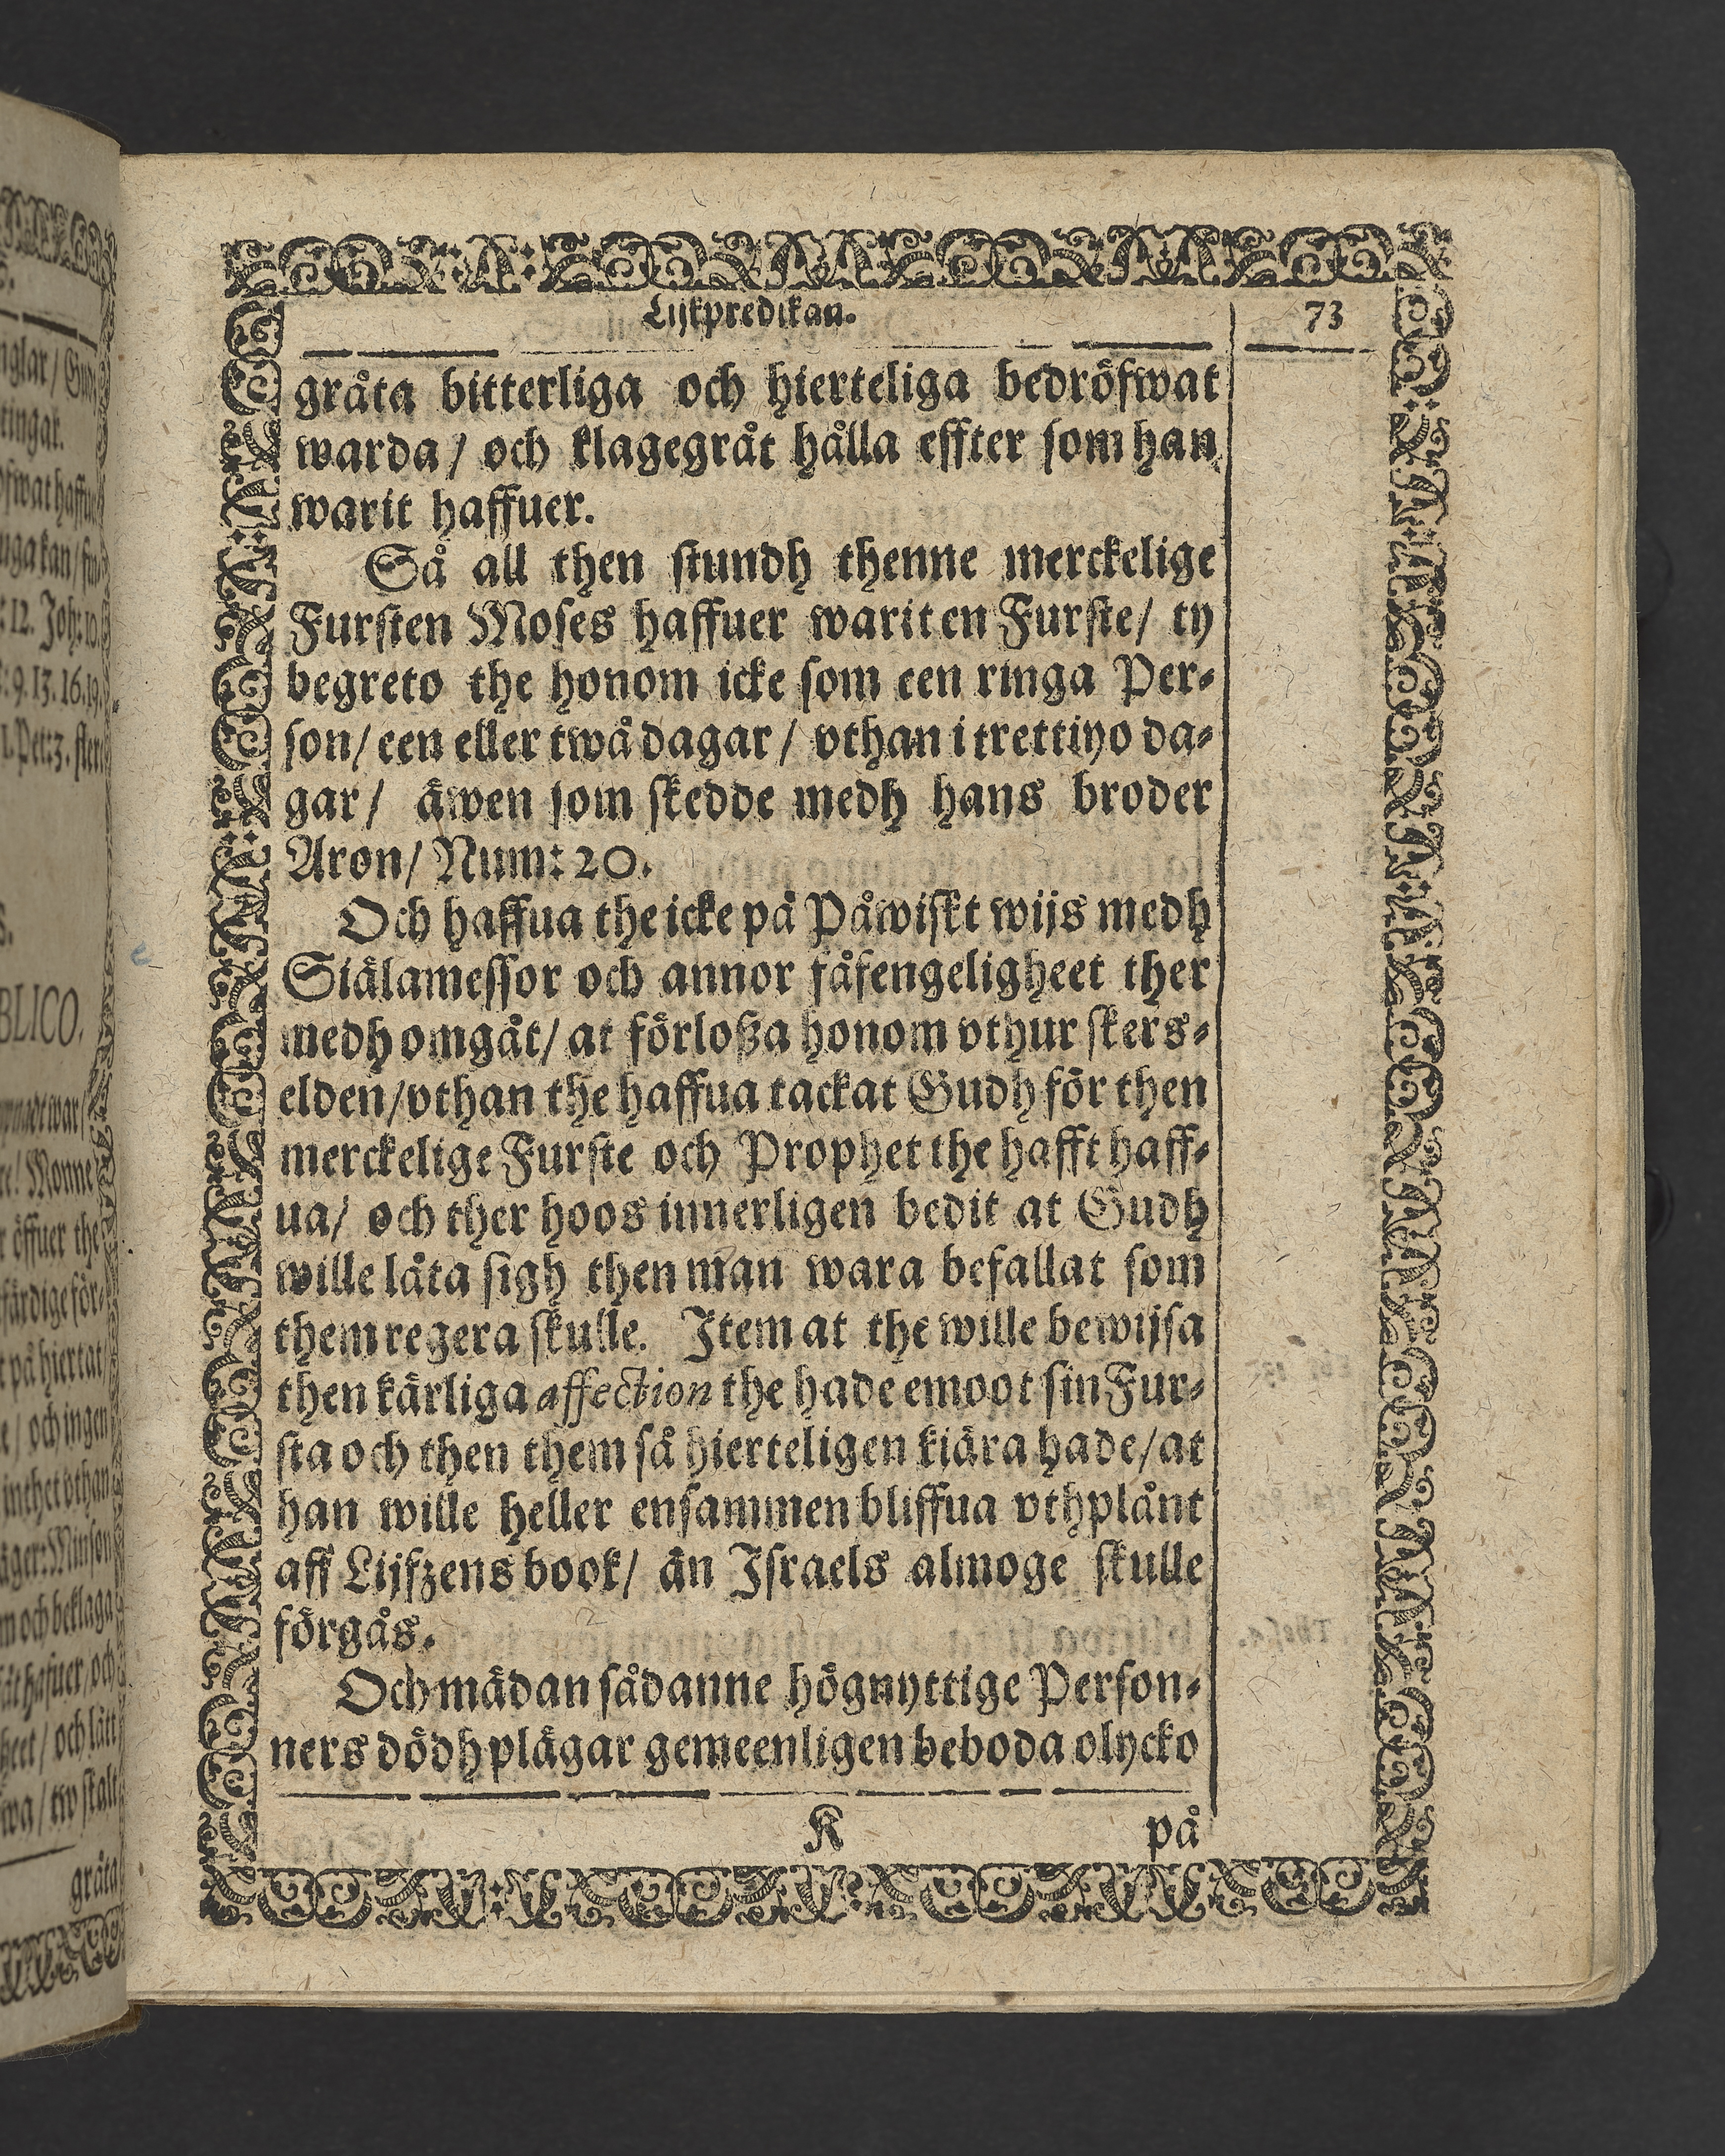 Lijkpredikan. 73
gråta bitterliga och hierteliga bedröfwat
warda / och klagegråt hålla effter som han
warit haffuer.
Så all then stundh thenne merckelige
Fursten Moses haffuer warit en Furste / ty
begreto the honom icke som een ringa Per-
son / een eller twå dagar / vthan i trettiyo da-
gar / äwen som skedde medh hans broder
Aron / Num: 20.
Och haffua the icke på Påwiskt wijs medh
Siälamessor och annor fåfengeligheet ther
medh omgåt / at förloßa honom vthur skers-
elden / vthan the haffua tackat Gudh för then
merckelige Furste och Prophet the hafft haff-
ua / och ther hoos innerligen bedit at Gudh
wille låta sigh then man wara befallat som
them regera skulle. Item at the wille bewijsa
then kärliga affection the hade emoot sin Fur-
sta och then them så hierteligen kiära hade / at
han wille heller ensammen bliffua vthplånt
aff Lijfzens book / än Israels almoge skulle
förgås.
Och mädan sådanne högnyttige Person-
ners dödh plägar gemeenligen beboda olycko
K på